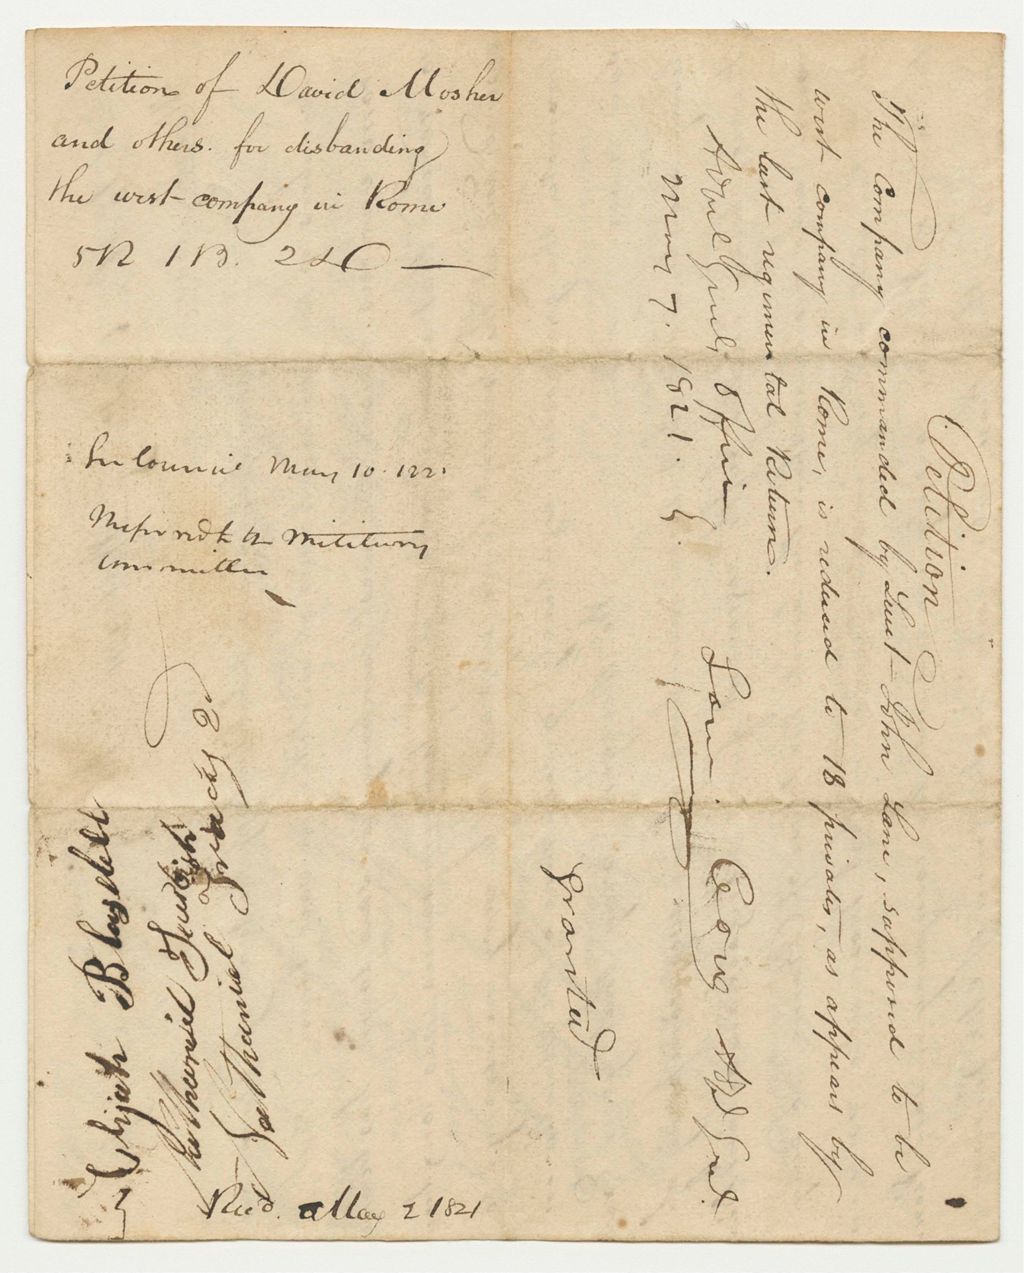 Petition of David Mosher
and others. for disbanding
the west company in Rome
5R 1B. 2D
In Council May 10. 1821
Referred to the military
committee
Elijah Blaysdell
Nathaniel
Nathaniel
Recd. May 2 1821
Petition
The Company commanded by Lieut John Lane, supposed to be
west company in Rome, is reduced to 18 privates, as appears by
the last regimental Return.
Adjut Genls Office
May 7. 1821.
Sam. Cony Adj Genl.
Granted